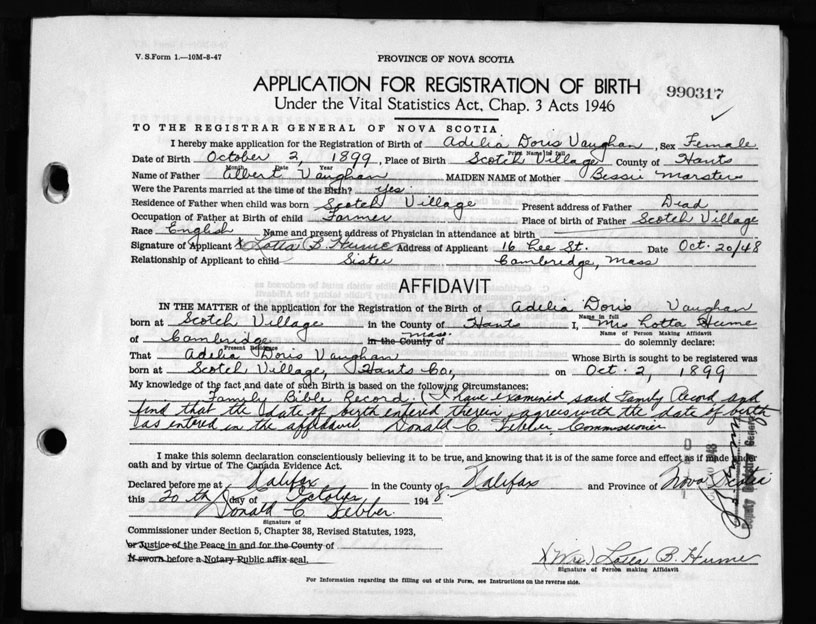 V. S. Form 1.—10M-8-47
PROVINCE OF NOVA SCOTIA
APPLICATION FOR REGISTRATION OF BIRTH
990317
Under the Vital Statistics Act, Chap. 3 Acts 1946
TO THE REGISTRAR GENERAL OF NOVA SCOTIA
I hereby make application for the Registration of Birth of Adelia Doris Vaughan, Sex Female
Print Name in full
Date of Birth October 2, 1899, Place of Birth Scotch Village County of Hants
Month Day Year
Name of Father Albert Vaughan MAIDEN NAME of Mother Bessie Marsters
Were the Parents married at the time of the Birth? yes
Residence of Father when child was born Scotch Village Present address of Father Dead
Occupation of Father at Birth of child Farmer Place of birth of Father Scotch Village
Race English Name and present address of Physician in attendance at birth
Signature of Applicant X Lotta B. Hume Address of Applicant 16 Lee St. Date Oct. 20/48
Relationship of Applicant to child Sister Cambridge, Mass
AFFIDAVIT
IN THE MATTER of the application for the Registration of the Birth of Adelia Doris Vaughan
Name in full
born at Scotch Village in the County of Hants I, Mrs Lotta Hume
Name of Person Making Affidavit
of Cambridge Mass. in the County of do solemnly declare:
Present Residence
That Adelia Doris Vaughan Whose Birth is sought to be registered was
born at Scotch Village, Hants Co, on Oct. 2, 1899
My knowledge of the fact and date of such Birth is based on the following Circumstances:
Family Bible Record. (I have examined said Family Record and
find that the date of birth entered therein agrees with the date of birth
as entered in the affidavit. Donald C. Commissioner
I make this solemn declaration conscientiously believing it to be true, and knowing that it is of the same force and effect as if made under
oath and by virtue of The Canada Evidence Act.
Declared before me at Halifax in the County of Halifax and Province of Nova Scotia
this 20th day of October 1948.
Donald C.
Signature of
Commissioner under Section 5, Chapter 38, Revised Statutes, 1923,
or Justice of the Peace in and for the County of
If sworn before a Notary Public affix seal.
X (Mrs.) Lotta B. Hume
Signature of Person making Affidavit
For Information regarding the filling out of this Form, see Instructions on the reverse side.
Deputy Registrar General